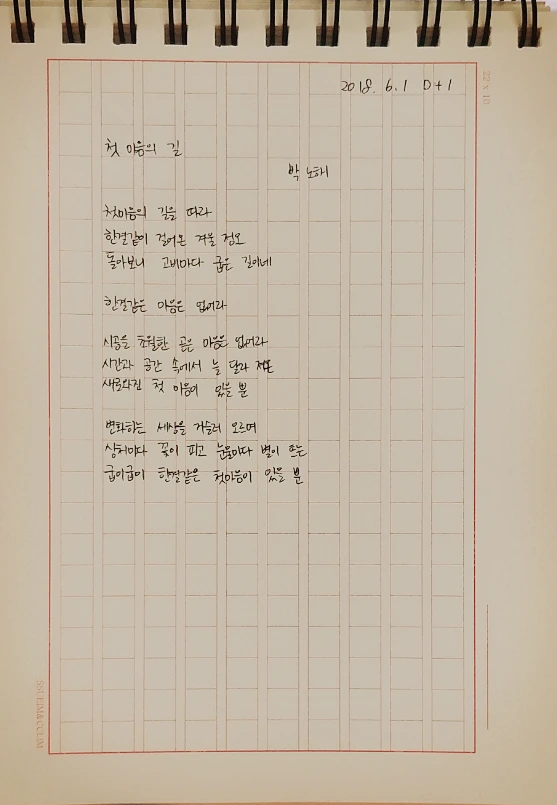 2018. 6. 1 D+1
22 x 10
첫 마음의 길
박 노해
첫마음의 길을 따라
한결같이 걸어온 겨울 정오
돌아보니 고비마다 굽은 길이네
한결같은 마음은 없어라
시공을 초월한 곧은 마음은 없어라
시간과 공간 속에서 늘 달라져온
새로와진 첫 마음이 있을 뿐
변화하는 세상을 거슬러 오르며
상처마다 꽃이 피고 눈물마다 별이 뜨는
굽이굽이 한결같은 첫마음이 있을 뿐